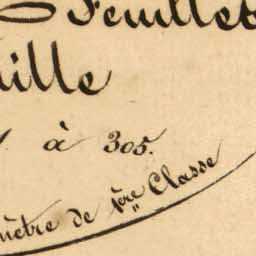 Feuillet
ille
à 305.
mètre de 1ère Classe